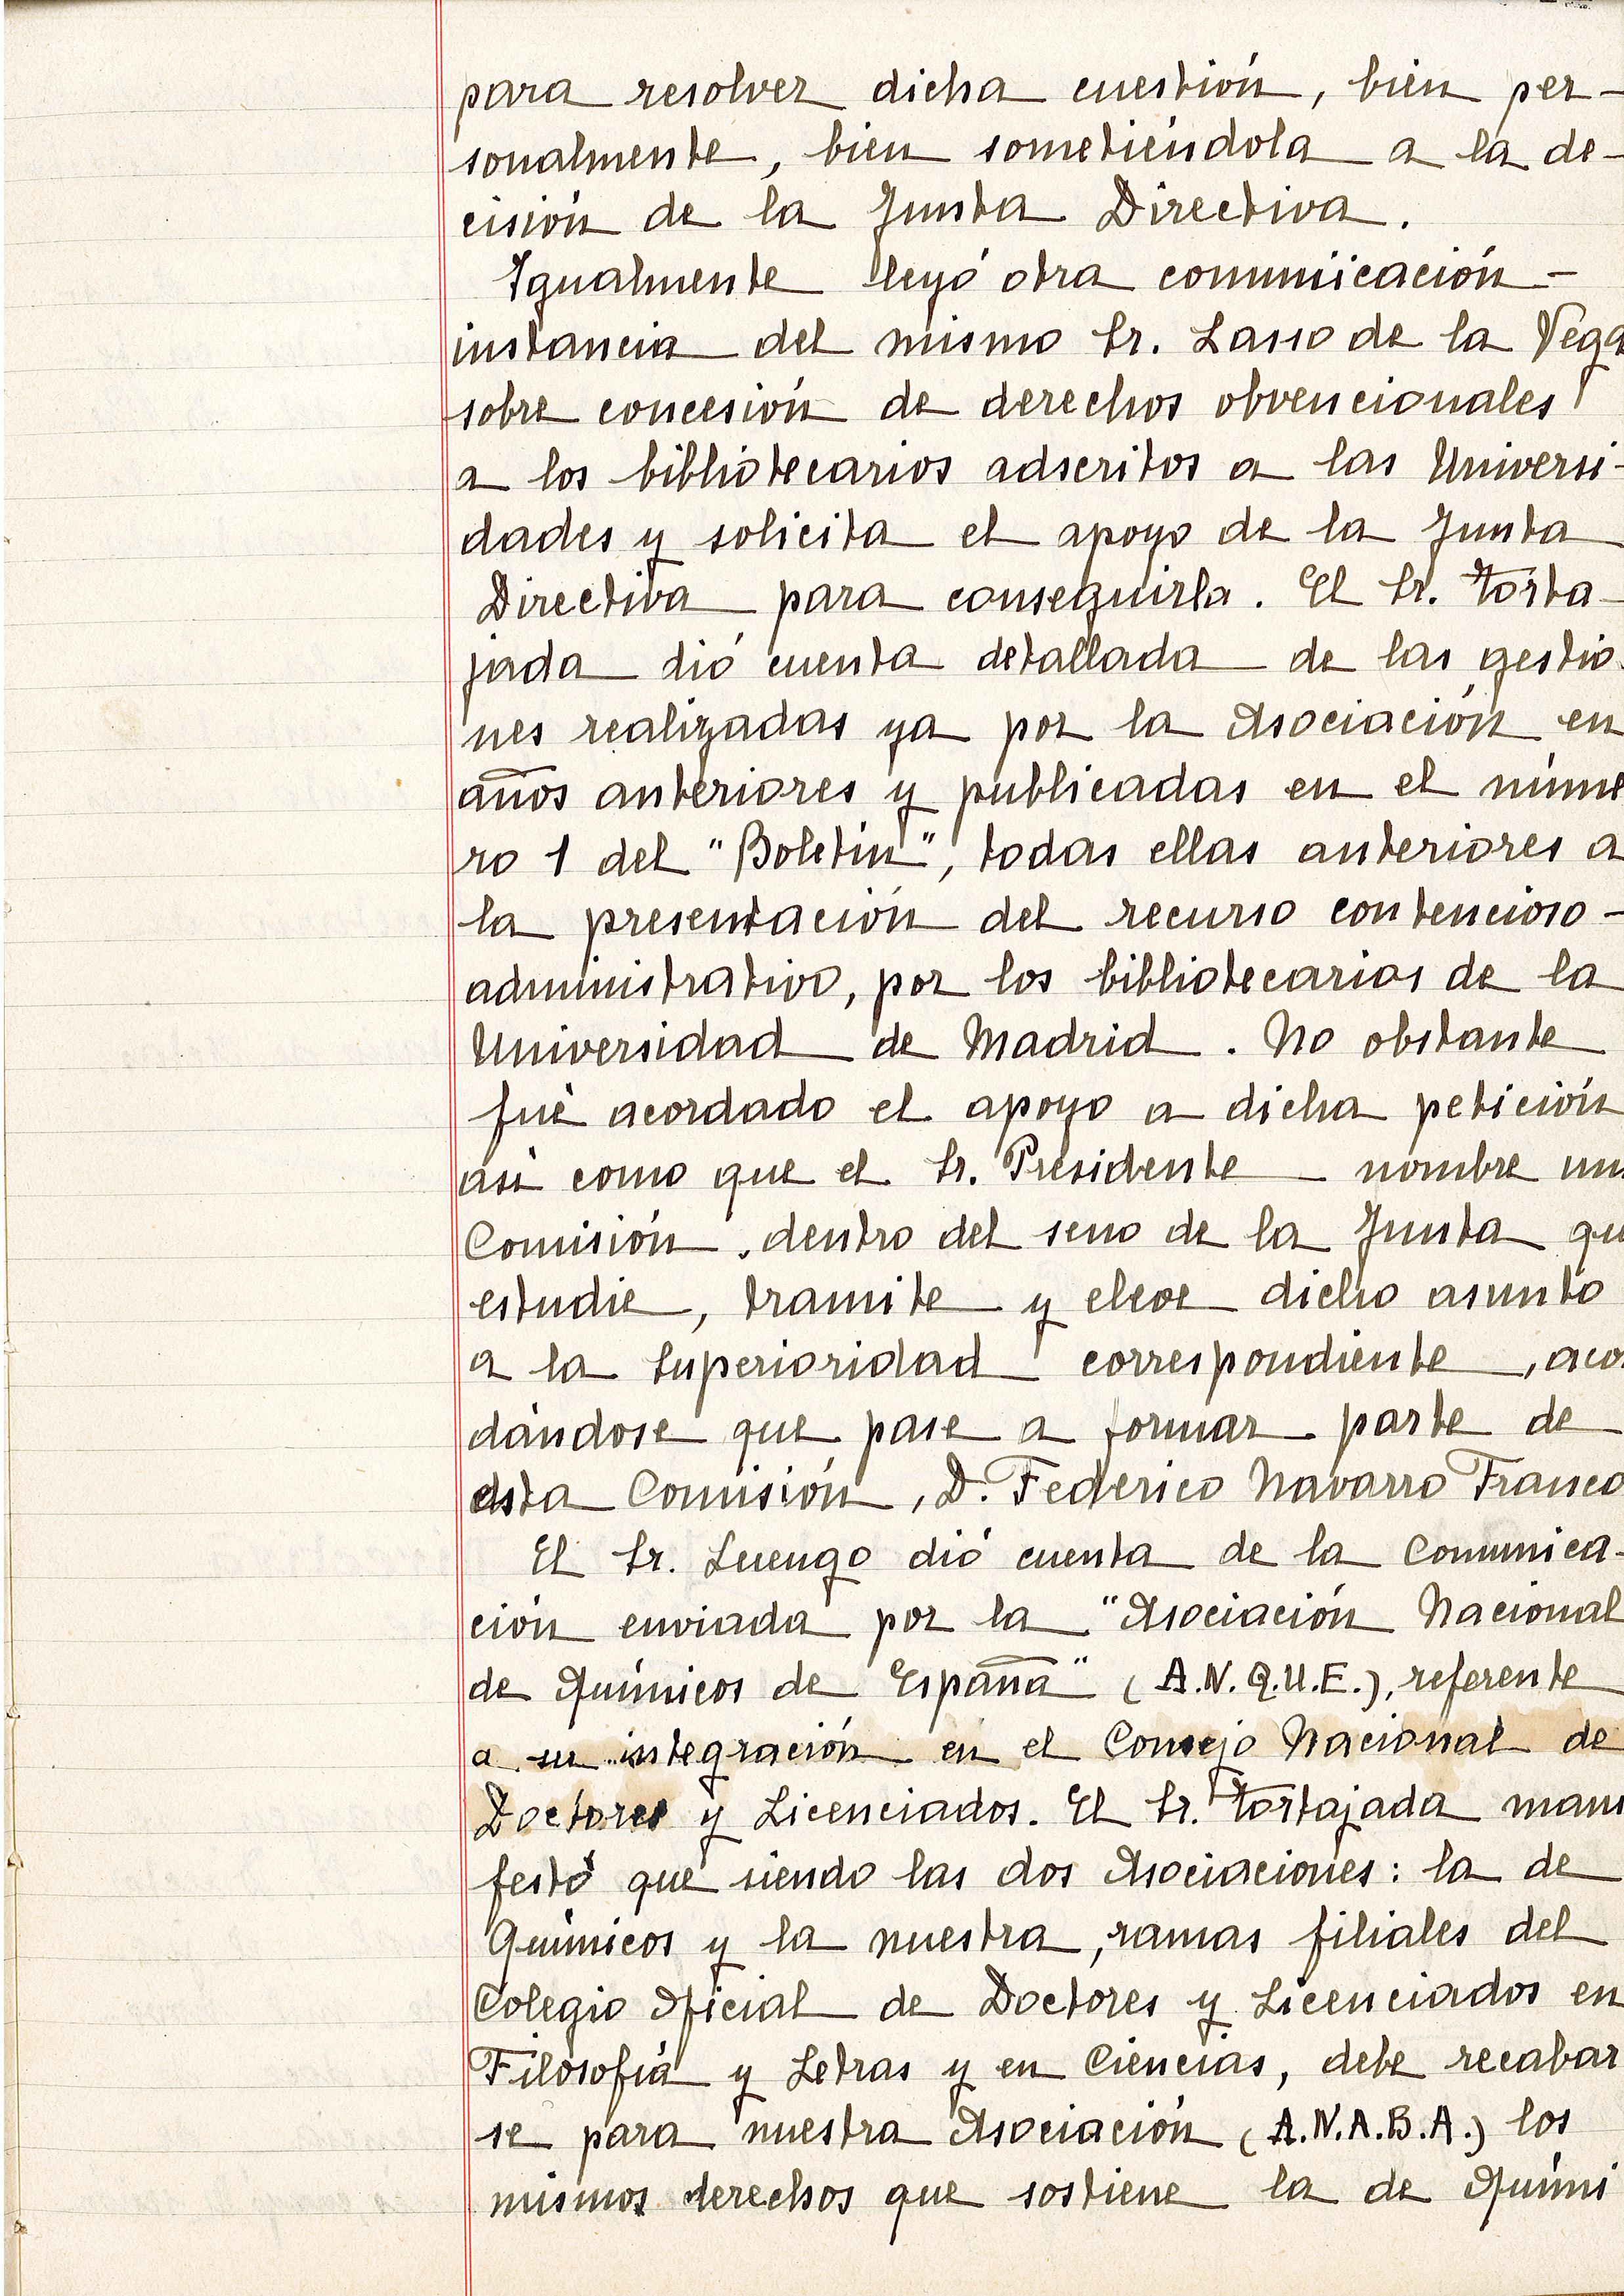 para resolver dicha cuestión, bien per-
sonalmente, bien sometiéndola a la de-
cisión de la Junta Directiva.
Igualmente leyó otra comunicación-
instancia del mismo Sr. Lasso de la Vega
sobre concesión de derechos obvencionales
a los bibliotecarios adscritos a las Universi-
dades y solicita el apoyo de la Junta
Directiva para conseguirla. El Sr. Torta-
jada dió cuenta detallada de las gestio-
nes realizadas ya por la Asociación en
años anteriores y publicadas en el núme
ro 1 del "Boletín", todas ellas anteriores a
la presentación del recurso contencioso-
administrativo, por los bibliotecarios de la
Universidad de Madrid. No obstante
fué acordado el apoyo a dicha petición
así como que el Sr. Presidente nombre un
Comisión, dentro del seno de la Junta qu
estudie, tramite y eleve dicho asunto
a la Superioridad correspondiente, acor
dándose que pase a formar parte de
esta Comisión, D. Federico Navarro Franco
El Sr. Luengo dió cuenta de la Comunica-
ción enviada por la "Asociación Nacional
de Químicos de España" (A.N.Q.U.E.), referente
a su integración en el Consejo Nacional de
Doctores y Licenciados. El Sr. Tortajada mani
festó que siendo las dos Asociaciones: la de
Químicos y la nuestra, ramas filiales del
Colegio Oficial de Doctores y Licenciados en
Filosofía y Letras y en Ciencias, debe recabar
se para nuestra Asociación (A.N.A.B.A.) los
mismos derechos que sostiene la de Quími